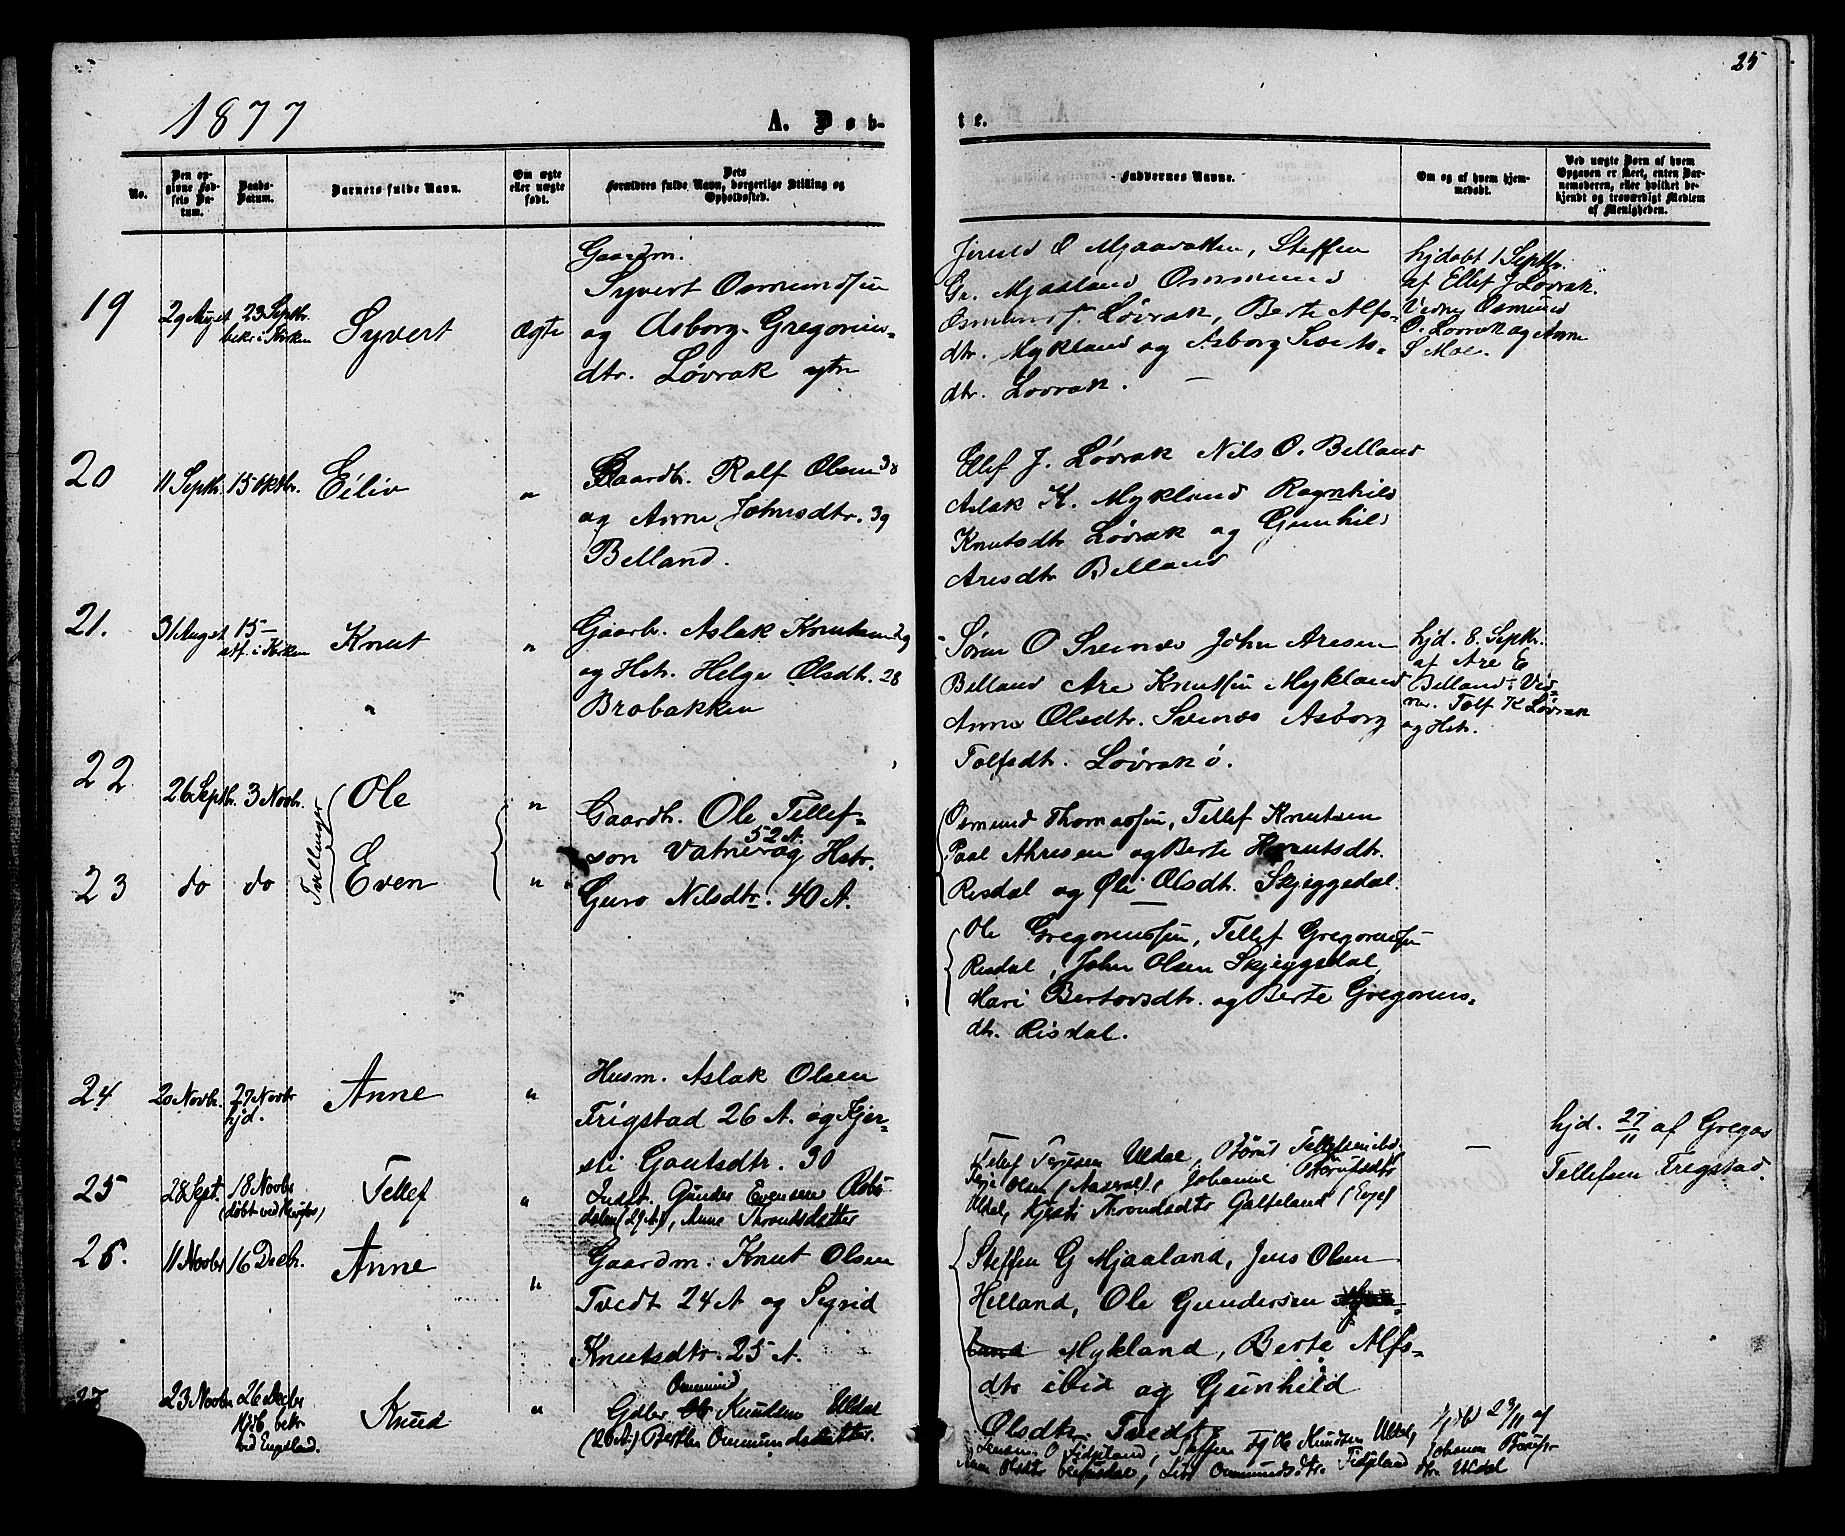 25
1877
A. Døb-
te.
No.
Den opgivne Fødsels Datum.
Daabs-Datum.
Barnets fulde Navn.
Om ægte eller uægte født.
Dets Forældres fulde Navn, borgerlige Stilling og Opholdssted.
Faddernes Navne.
Om og af hvem hjemmedøbt.
Ved uægte Børn af hvem Opgaven er skeet, enten Barnemoderen, eller hvilket bekjendt og troværdigt Medlem af Menigheden.
19
29 August
23 Septbr.
bekr. i Kirken
Syvert
Ægte
Gaardm.
Syvert Osmundsen
og Asborg Gregorius-
dtr. Løvrak
O Mjaavatten, Steffen
G. Mjaaland Osmund
Osmunds. Løvrak, Berte Alfs-
dtr. Mykland og Asborg
dtr. Løvrak.
hjdøbt 1 Septbr.
af Ellef J Løvrak.
Vidner Osmund
O. Løvrak og Anne
S Moe.
20
11 Septbr.
15 Oktbr.
Eiliv
"
Gaardbr. Rolf Olsen 38
og Anne Johnsdtr. 39
Belland.
Ellef J. Løvrak Nils O. Belland
Aslak K. Mykland Ragnhild
Knutsdtr Løvrak og Gunhild
Aresdtr Belland
21.
31 August
15 —
i Kirken
Knut
"
Gaarbr. Aslak Knutsen 29
og Hstr. Helge Olsdtr. 28
Brobakken
Søren O Svenes John Aresen
Belland Are Knutsen Mykland
Anne Olsdtr. Svenes Asborg
Tolfsdtr. Løvrak ö.
hjd. 8. Septbr.
af Are E
Belland. Vid-
ner. Tolf K Løvrak
og Hstr.
22
26 Septbr.
3 Novbr.
Tvillinger
Ole
"
Gaardbr. Ole Tellef-
son Vatne 52 A. og Hstr.
Guro Nilsdtr. 40 A.
Osmund Thomassen, Tellef Knutsen
Paal Akresen og Berte Knutsdtr.
Risdal og Øli Olsdtr. Skjeggedal.
23
do
do
Even
"
Ole Gregoriussen, Tellef Gregoriussen
Risdal, John Olsen Skjeggedal,
Mari Bertovsdtr. og Berte Gregorius-
dtr. Risdal.
24
20 Novbr.
27 Novbr
hjd.
Anne
"
Husm. Aslak Olsen
Frigstad 26 A. og Kjer-
sti Gautsdtr. 30
—
hjd. 27/11 af Gregos
Tellefsen Frigstad.
25
28 Sept.
18 Novbr
Tellef
"
Indst. Gunder Evensen
Anne Throndsdatter
Tellef Terjesen Uldal, Børut Tellefsen ibd.
Terje Olsen Johanne Børufsdtr
Uldal, Kjersti Throndsdtr Galteland (Evje)
26.
11 Novbr
16 Decbr.
Anne
"
Gaardm. Knut Olsen
Tvedt 24 A og Sigrid
Knutsdtr. 25 A.
Steffen G Mjaaland, Jens Olsen
Helland, Ole Gundersen
Mykland, Berte Alfs-
dtr ibid og Gunhild
Olsdtr. Tvedt.
27
23 Novbr
26 Decbr
bekr
ved Engesland.
Knud
"
Ommund
Gdbr Knudsen Uldal
(26 A.) Berthe Ommundsdatter.
O Fidjeland, Steffen Ole Knudsen Uldal,
Olsdtr Ommundsdtr. Fidjeland
29/11 af
Johanne Børufs-
dtr. Uldal